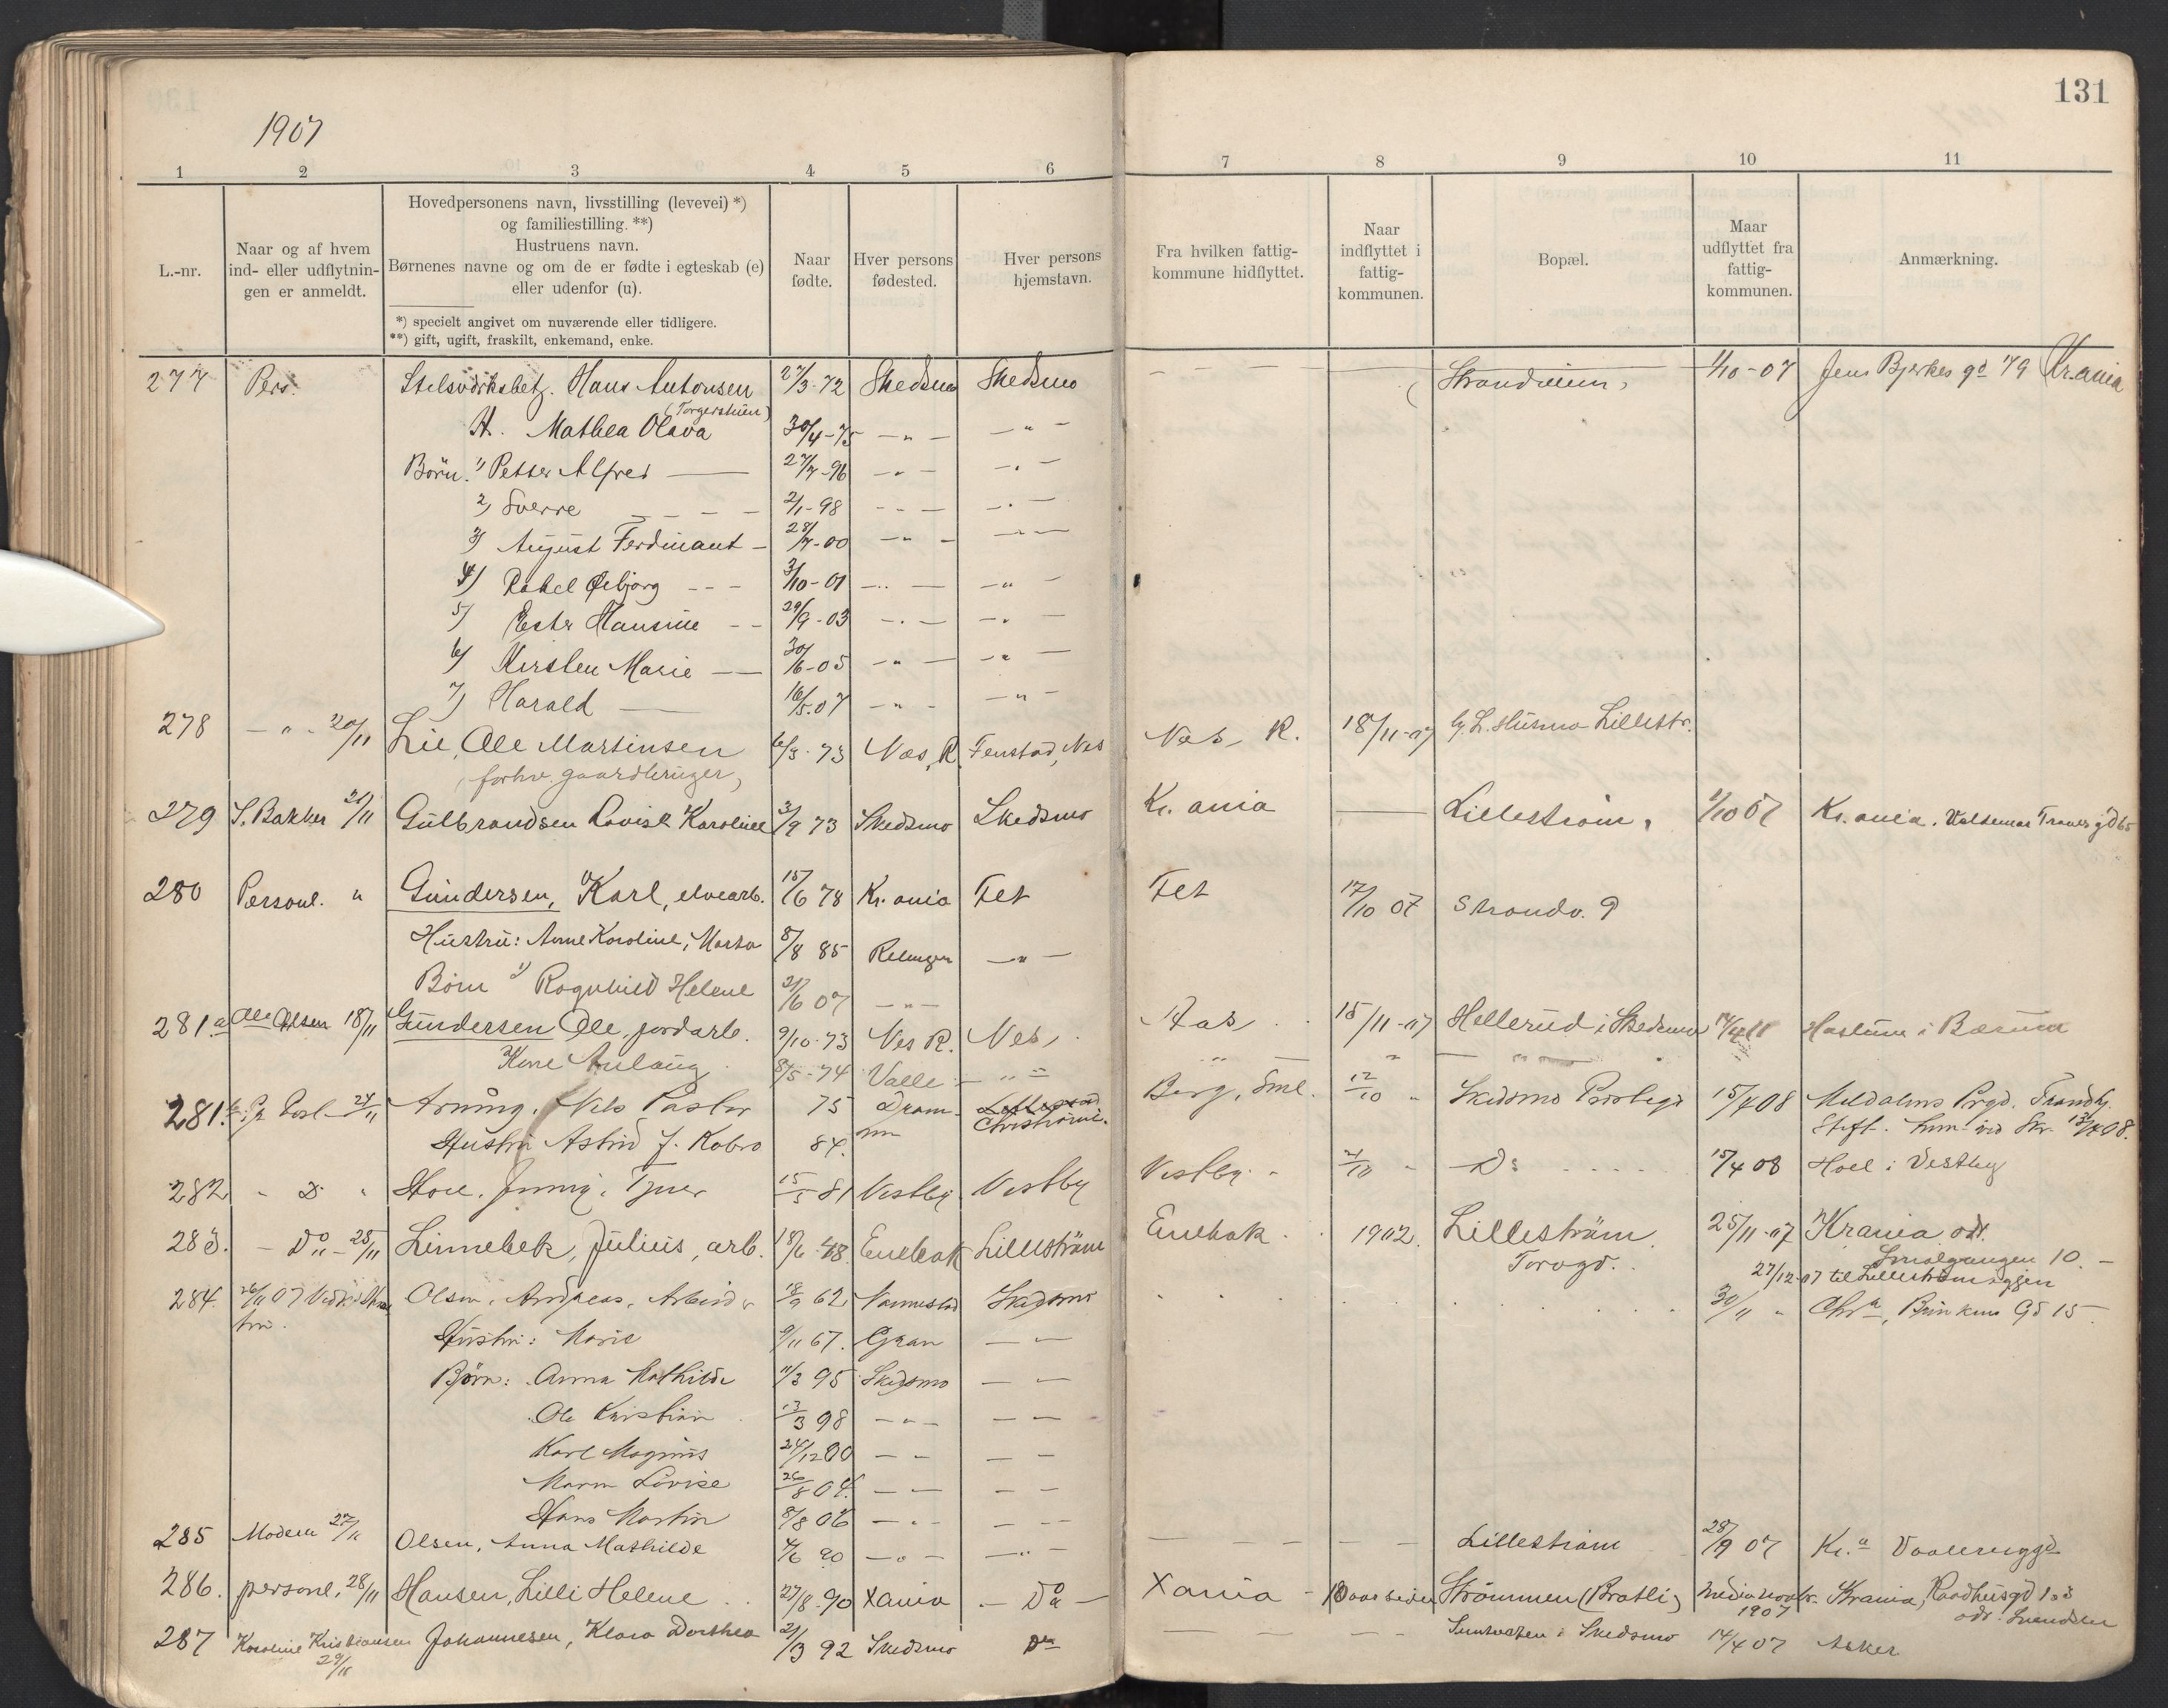 131
1907
1 2 3 4 5 6 7 8 9 10 11
L.-nr.
Naar og af hvem
ind- eller udflytnin-
gen er anmeldt.
Hovedpersonens navn, livsstilling (levevei) *)
og familiestilling. **)
Hustruens navn.
Børnenes navne og om de er fødte i egteskab (e)
eller udenfor (u).
*) specielt angivet om nuværende eller tidligere.
**) gift, ugift, fraskilt, enkemand, enke.
Naar
fødte.
Hver persons
fødested.
Hver persons
hjemstavn.
Fra hvilken fattig-
kommune hidflyttet.
Naar
indflyttet i
fattig-
kommunen.
Bopæl.
Maar
udflyttet fra
fattig-
kommunen.
Anmærkning.
277 Pers. Hans Antonsen 27/3-72 Skedsmo Skedsmo 1/10-07 Jens Bjerkes gd 79 Krania
(Torgerstuen)
H. Mathea Olava 30/4-75 - " - - " -
Børn. 1) Petter Alfred 27/7-96 - " - - " -
2) Sverre 2/1-98 - - - - " -
3) August Ferdinant - 28/7-00 - " - - " -
4) Rakel - - - 3/10-01 - " - - " -
5) Ester Hansine - - 29/9-03 - " - - " -
6) Kirsten Marie - - 30/6-05 - " - - " -
7) Harald 16/5.07 - " - - " -
278 - " - 20/11 Lie, Ole Martinsen 6/3-73 Næs, R. Fenstad, Næs Næs, R. 18/11-07 Lillestr.
forhv. gaardbruger,
279 S. Bakker 21/11 Gulbrandsen Lovise Karoline 3/9 73 Skedsmo Skedsmo Kr.ania Lillestrøm 1/10 07 Kr.ania. Valdemar Tranes gd 65
280 Personl. " Gundersen, Karl, elvearb. 15/6 78 Kr.ania Fet Fet 17/10 07 Strandv. 9
Hustru: Anne Karoline, Marta 8/8 85 Relingen - " -
Børn 1) Ragnhild Helene 21/6 07 - " -
281.a Ole Olsen 18/11 Gundersen Ole, jordarb. 9/10-73 Nes R. Nes, Aas 15/11-07 Hellerud i Skedsmo Haslum i Bærum
Kone Anlaug 8/5-74 Valle - " - - " - " - " -
281.b 24/11 Nils Pastor 75 Dram- Berg, Sml. 12/10 " Skedsmo 15/4 08 Meldalens Prgd. Trondhj.
Hustru Astrid J. Kobro 84. men Christiania. Stift. 13/4 08.
282 - D - Hoel, Jenny, Tjener 15/5 81 Vestby Vestby Vestby 21/10 " Do 15/4 08 Hoel i Vestby
283. - Do - 25/11 Linnebek, Julius, arb. 18/6-48 Enebak Lillestrøm Enebak 1902. Lillestrøm 25/11-07 Krania adr.
Torvgd. Smalgangen 10. -
27/12-07 til Lillestrøm igjen
284. 26/11 07 Olsen, Andreas, Arbeider 18/9 62 Nannestad Skedsmo 30/11 " Chra, Brinkens Gd 15
Hustru: Marie 9/11 67. Gran - -
Børn: Anna Mathilde 11/3 95 Skedsmo - -
Ole Kristian 13/3 98 - " - - -
Karl Magnus 24/12 00 - - - -
Maren Lovise 26/8 04. - - - -
Hans Martin 8/8 06 - " - - -
285 Moderen 27/11 Olsen, Anna Mathilde 4/6 90 - " - - " - Lillestrøm 28/9 07 Kr.a Vaalerenggd
286. personl. 28/11 Hansen, Lilli Helene 27/8-90 Xania - Do - Xania - Strømmen (Bratli) 1907 Krania, Raadhusgd
adr. Svendsen
287 Karoline Kristiansen 29/11 Johannesen, Klara Dorthea 21/3 92 Skedsmo Do i Skedsmo 14/4 07 Asker